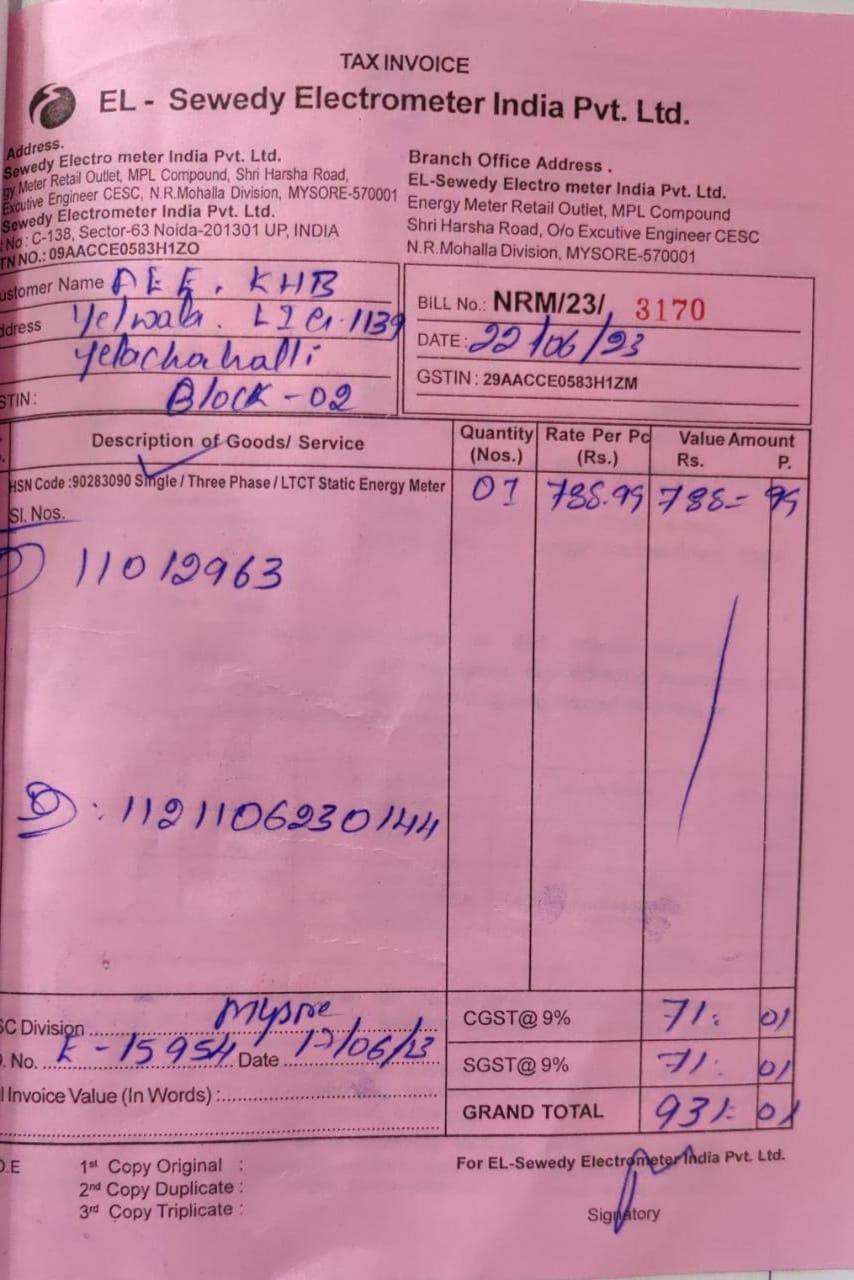 TAX INVOICE
EL - Sewedy Electrometer India Pvt. Ltd.
Address.
Sewedy Electro meter India Pvt. Ltd.
gy Meter Retail Outlet, MPL Compound, Shri Harsha Road,
Excutive Engineer CESC, N.R.Mohalla Division, MYSORE-570001
Sewedy Electrometer India Pvt. Ltd.
No : C-138, Sector-63 Noida-201301 UP, INDIA
TN NO.: 09AACCE0583H1ZO
Branch Office Address .
EL-Sewedy Electro meter India Pvt. Ltd.
Energy Meter Retail Outlet, MPL Compound
Shri Harsha Road, O/o Excutive Engineer CESC
N.R.Mohalla Division, MYSORE-570001
ustomer Name AEE, KHB
ddress Yelwala. LIG-1139
Yelachahalli
STIN : Block - 02
BILL No.: NRM/23/ 3170
DATE : 22/06/23
GSTIN : 29AACCE0583H1ZM
Description of Goods/ Service Quantity (Nos.) Rate Per Pc (Rs.) Value Amount Rs. P.
HSN Code :90283090 Single / Three Phase / LTCT Static Energy Meter 01 788.99 788- 99
Sl. Nos.
11012963
: 11211062301​44
SC Division Mysore
. No. K-15954 Date 17/06/23
l Invoice Value (In Words) :
CGST@ 9% 71. 01
SGST@ 9% 71. 01
GRAND TOTAL 931. 01
O.E
1st Copy Original :
2nd Copy Duplicate :
3rd Copy Triplicate :
For EL-Sewedy Electrometer India Pvt. Ltd.
Signatory